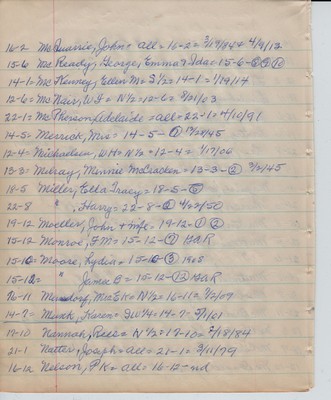 16-2 McQuarrie, John + all = 16-2 = 3/19/84 + 4/9/12
15-6 McReady, George, Emma & Ida = 15-6 -
14-1 = McKenney, Ellen M = S 1/2 = 14-1 = 1/19/14
12-6 = McNair, W.F = N 1/2 = 12-6 = 8/21/03
22-1 = McPherson, Adelaide = all = 22-1 = 4/10/91
14-5 = Merrick, Mrs = 14-5 - ① 12/24/45
12-4 = Michaelson, W.H = N 1/2 = 12-4 = 1/17/06
13-3 = Milray, Minnie McCracken = 13-3 - 3/2/45
18-5 Miller, Etta Tracy = 18-5 -
22-8 " , Harry = 22-8 - 4/22/50
19-12 Moeller, John + wife - 19-12 - ① ②
15-12 Monroe, F.M = 15-12 - GAR
15-10 = Moore, Lydia = 15-10 - ③ 1908
15-12 = " James E = 15-12 - ⑫ GAR
16-11 Mrs E.K = N 1/2 = 16-11 = 7/2/07
14-7 = Munk, Karen = SW 1/4 = 14-7 = 5/1/01
17-10 Hannah, Rees = N 1/2 = 17-10 = 2/18/84
21-1 Natter, Joseph = all = 21-1 = 3/11/79
16-12 Nelson, P.K = all = 16-12 - nd